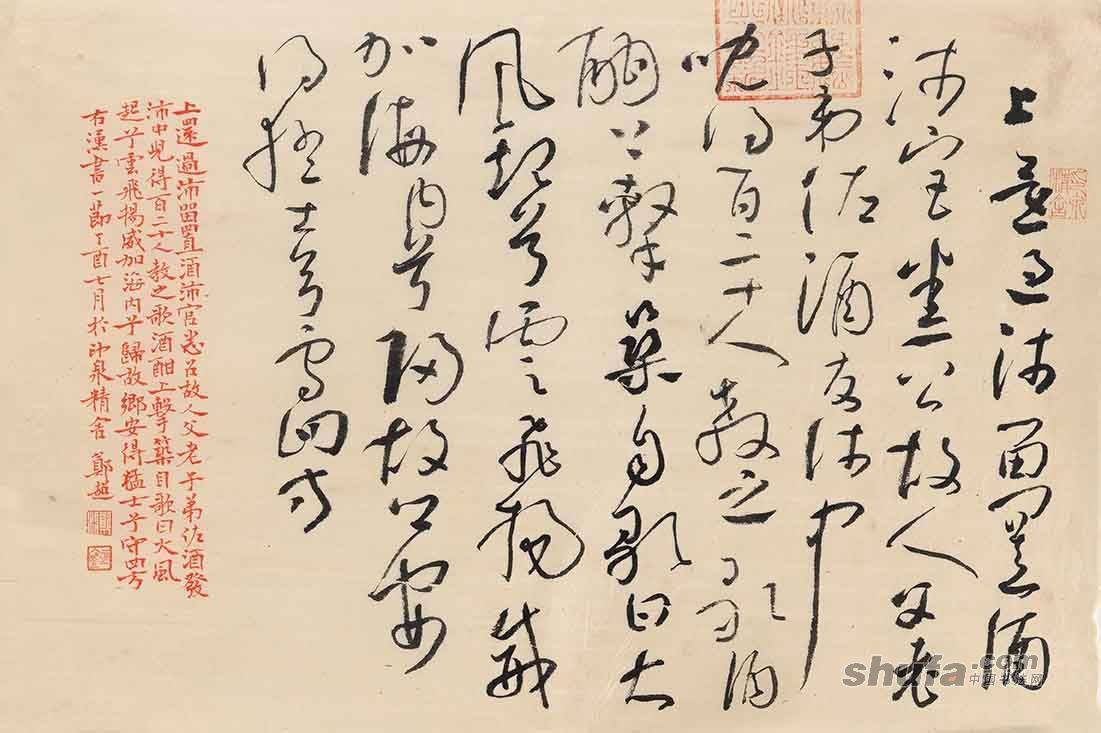 上還過沛留置酒
沛宮悉召故人父老
子弟佐酒發沛中
兒得百二十人教之歌酒
酣上擊築自歌曰大
風起兮雲飛揚威
加海内兮歸故鄉安
得猛士兮守四方
上還過沛留置酒沛宮悉召故人父老子弟佐酒發
沛中兒得百二十人教之歌酒酣上擊築自歌曰大風
起兮雲飛揚威加海内兮歸故鄉安得猛士兮守四方
右漢書一節丁酉七月於印泉精舍 鄭超
shufa.com
中国书法网